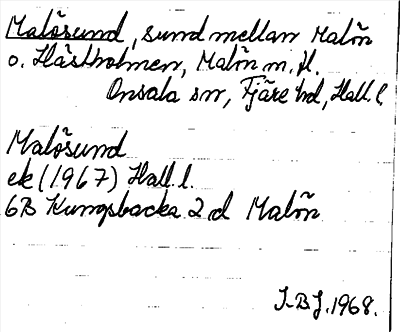 Malösund, sund mellan Malön
o. Hästholmen, Malön m. fl.
Onsala sn, Fjäre hd, Hall. l.
Malösund
ek (1967) Hall. l.
6B Kungsbacka 2 d Malön
I.BJ. 1968.